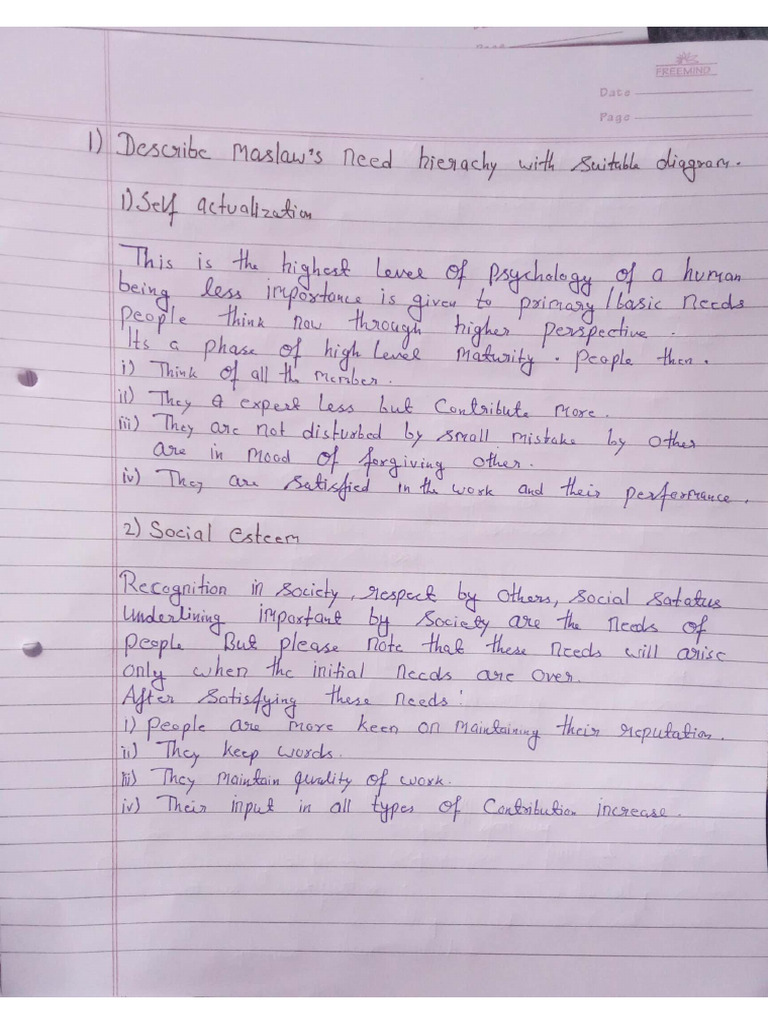 FREEMIND
Date
Page
1) Describe Maslaw's need hierachy with suitable diagram.
1) Self actualization
This is the highest level of psychology of a human
being less importance is given to primary/basic needs
people think now through higher perspective.
Its a phase of high level maturity. people then.
i) Think of all the member.
ii) They expert less but contribute more.
iii) They are not disturbed by small mistake by other
are in mood of forgiving other.
iv) They are satisfied in the work and their performance.
2) Social esteem
Recognition in society, respect by others, social satatus
underlining important by society are the needs of
people But please note that these needs will arise
only when the initial needs are over.
After satisfying these needs:
i) people are more keen on maintaining their reputation.
ii) They keep words.
iii) They maintain quality of work.
iv) Their input in all types of contribution increase.